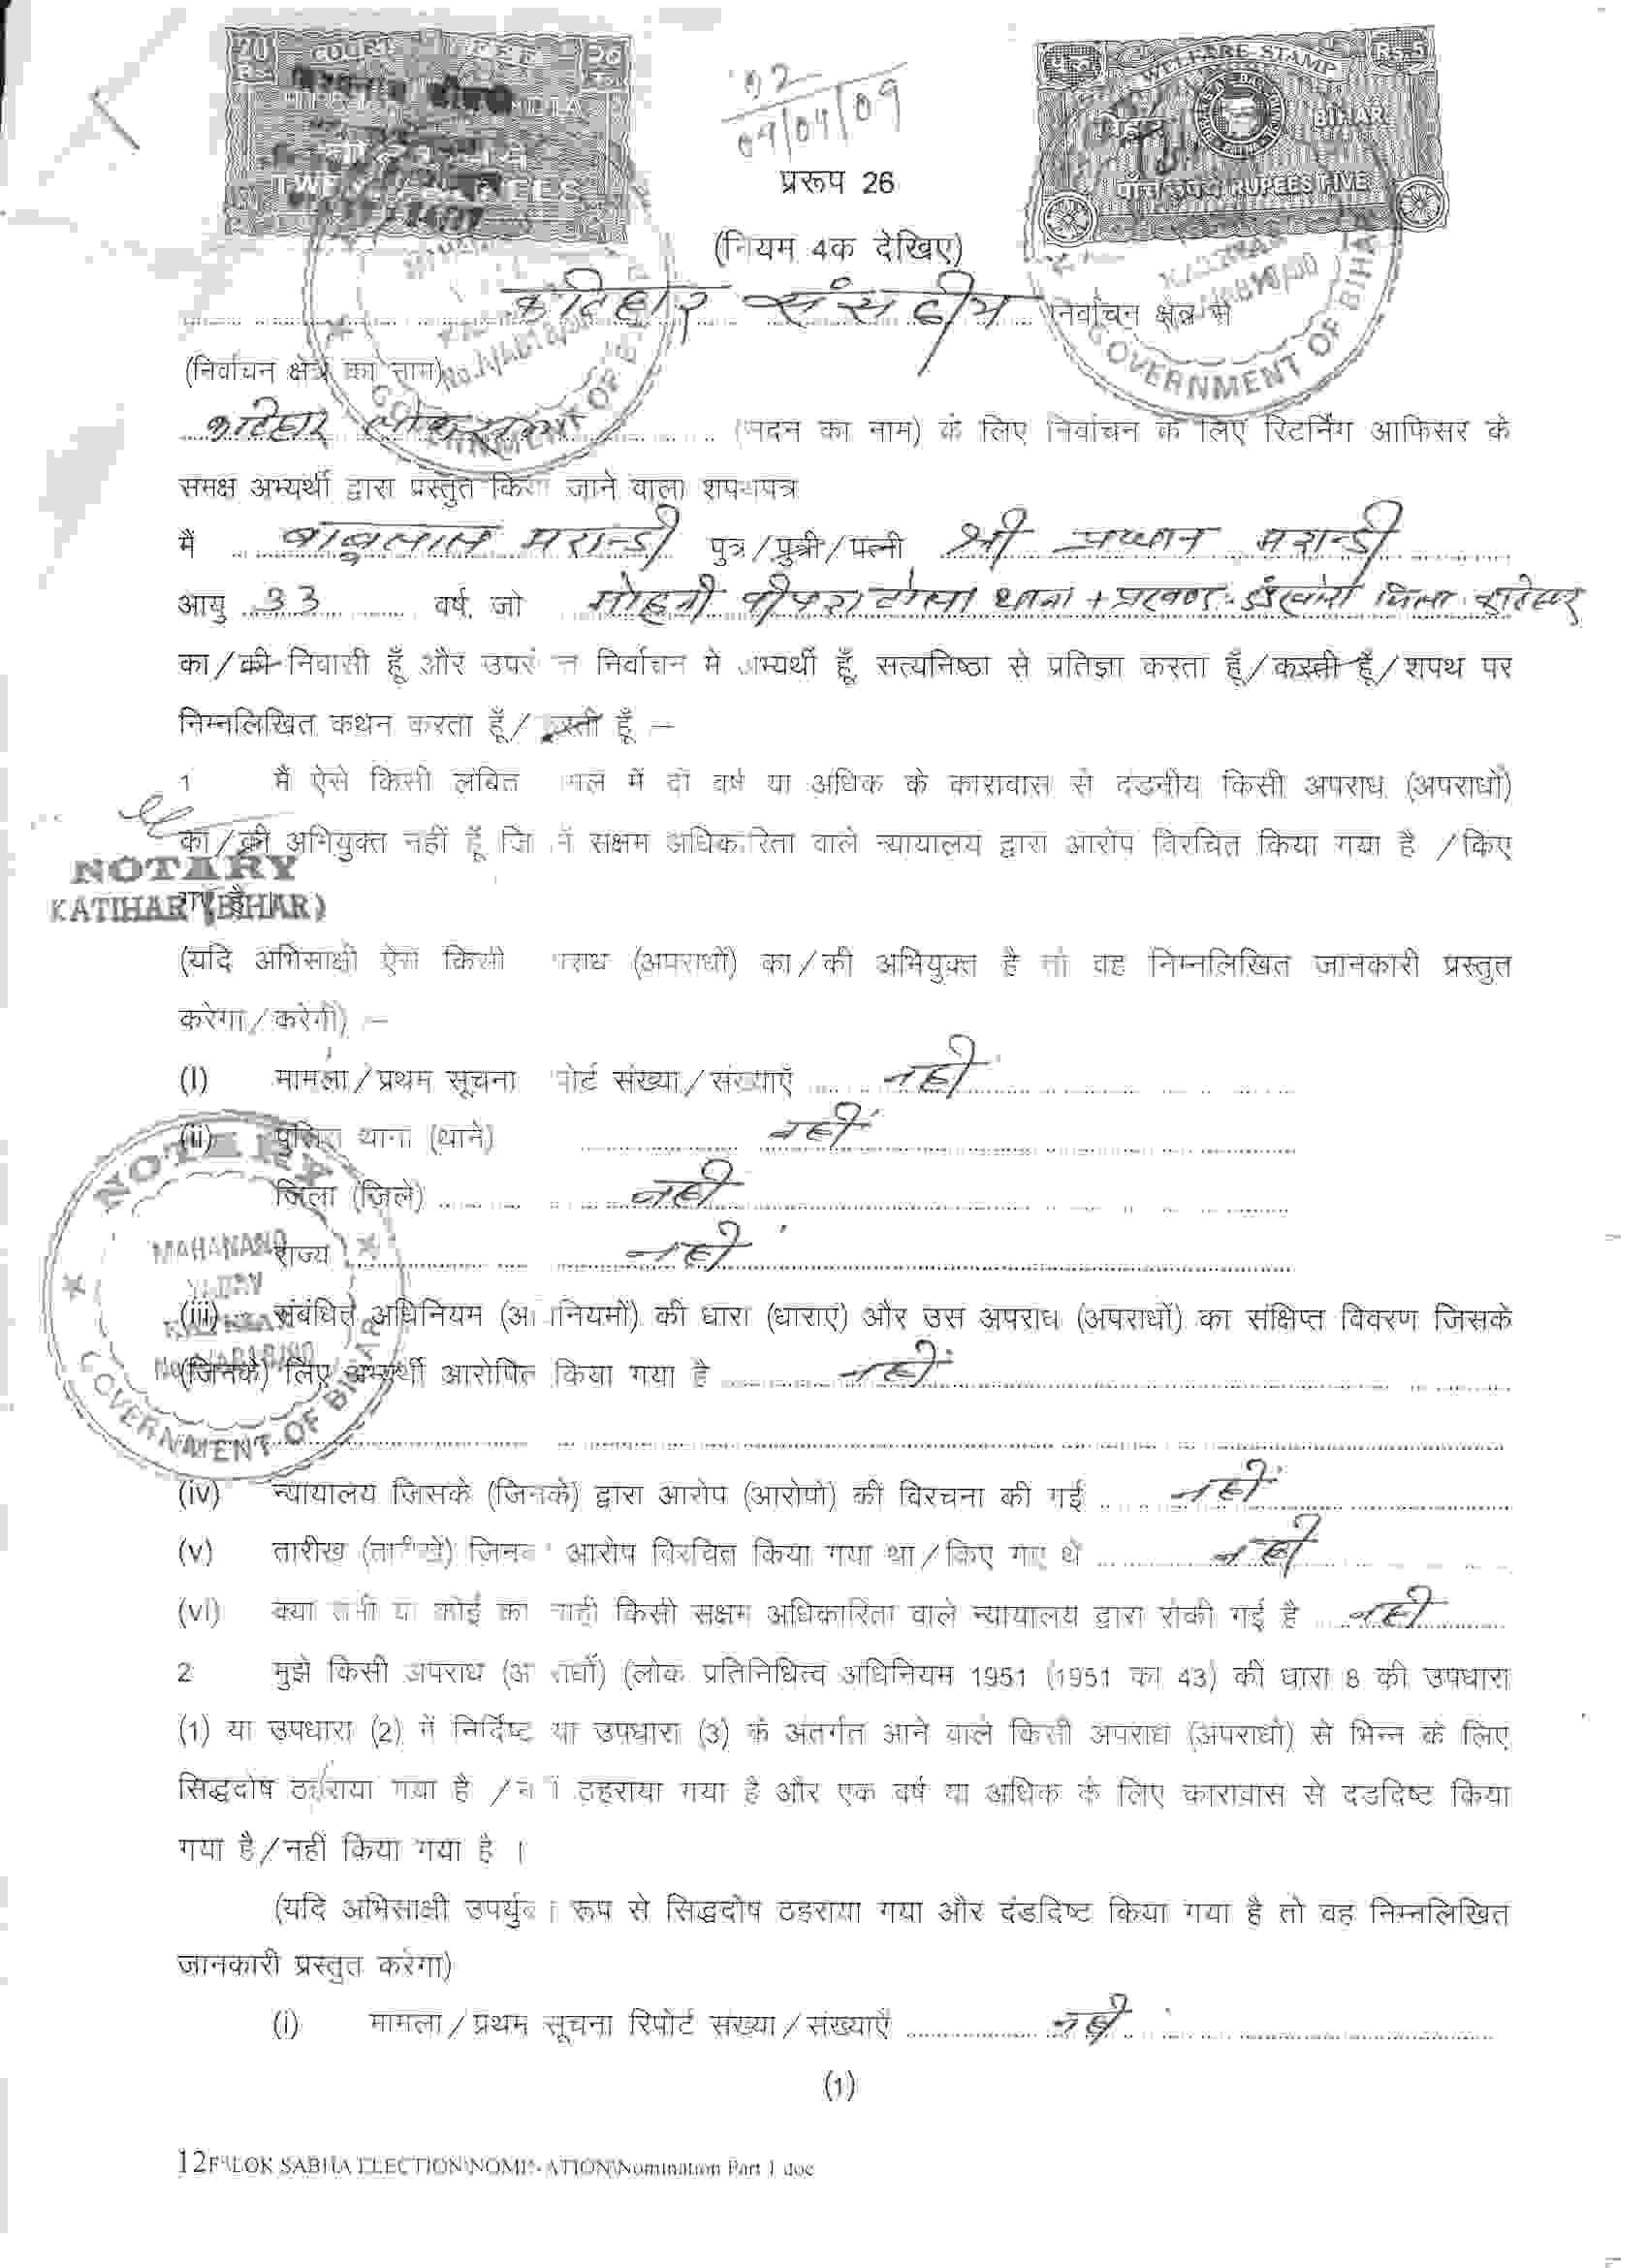 20 Rs. COURT FEE 20
INDIA
TWENTY RUPEES
02
09/04/09
Rs.5
WELFARE STAMP
BIHAR
पाँच रुपये RUPEES FIVE
प्ररूप 26
(नियम 4क देखिए)
कटिहार संसदीय निर्वाचन क्षेत्र से
GOVERNMENT OF BIHAR
GOVERNMENT OF BIHAR
(निर्वाचन क्षेत्र का नाम)
कटिहार लोकसभा (सदन का नाम) के लिए निर्वाचन के लिए रिटर्निंग आफिसर के
समक्ष अभ्यर्थी द्वारा प्रस्तुत किया जाने वाला शपथपत्र
मैं बाबुलाल मरान्डी पुत्र/पुत्री/पत्नी श्री प्रधान मरान्डी
आयु 33 वर्ष, जो मोहनी पीपरा टोला थाना + प्रखण्ड डंडखोरा जिला कटिहार
का/की निवासी हूँ और उपरोक्त निर्वाचन में अभ्यर्थी हूँ, सत्यनिष्ठा से प्रतिज्ञा करता हूँ/करती हूँ/शपथ पर
निम्नलिखित कथन करता हूँ/करती हूँ :–
1 मैं ऐसे किसी लंबित मामले में दो वर्ष या अधिक के कारावास से दंडनीय किसी अपराध (अपराधों)
का/की अभियुक्त नहीं हूँ जिसमें सक्षम अधिकारिता वाले न्यायालय द्वारा आरोप विरचित किया गया है /किए
NOTARY
गए हैं।
KATIHAR (BIHAR)
(यदि अभिसाक्षी ऐसे किसी अपराध (अपराधों) का/की अभियुक्त है तो वह निम्नलिखित जानकारी प्रस्तुत
करेगा/करेगी) :–
(I) मामला/प्रथम सूचना रिपोर्ट संख्या/संख्याएँ नहीं
(ii) पुलिस थाना (थाने) नहीं
जिला (जिले) नहीं
राज्य नहीं
NOTARY
MAHANAND
GOVERNMENT OF BIHAR
(iii) संबंधित अधिनियम (अधिनियमों) की धारा (धाराएं) और उस अपराध (अपराधों) का संक्षिप्त विवरण जिसके
(जिनके) लिए अभ्यर्थी आरोपित किया गया है नहीं
(iv) न्यायालय जिसके (जिनके) द्वारा आरोप (आरोपों) की विरचना की गई नहीं
(v) तारीख (तारीखें) जिनको आरोप विरचित किया गया था/किए गए थे नहीं
(vi) क्या सभी या कोई कार्यवाही किसी सक्षम अधिकारिता वाले न्यायालय द्वारा रोकी गई है नहीं
2 मुझे किसी अपराध (अपराधों) (लोक प्रतिनिधित्व अधिनियम 1951 (1951 का 43) की धारा 8 की उपधारा
(1) या उपधारा (2) में निर्दिष्ट या उपधारा (3) के अंतर्गत आने वाले किसी अपराध (अपराधों) से भिन्न के लिए
सिद्धदोष ठहराया गया है /नहीं ठहराया गया है और एक वर्ष या अधिक के लिए कारावास से दंडदिष्ट किया
गया है/नहीं किया गया है ।
(यदि अभिसाक्षी उपर्युक्त रूप से सिद्धदोष ठहराया गया और दंडदिष्ट किया गया है तो वह निम्नलिखित
जानकारी प्रस्तुत करेगा)
(i) मामला/प्रथम सूचना रिपोर्ट संख्या/संख्याएँ नहीं
(1)
12F:\LOK SABHA ELECTION\NOMINATION\Nomination Part I.doc